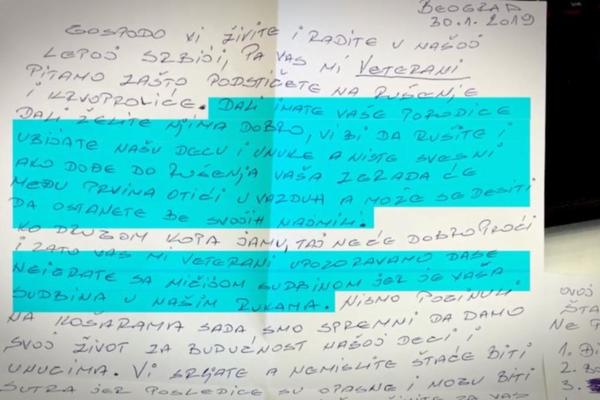 BEOGRAD
30.1.2019
GOSPODO VI ŽIVITE I RADITE U NAŠOJ
LEPOJ SRBIJI, PA VAS MI VETERANI
PITAMO ZAŠTO PODSTIČETE NA RUŠENJE
I KRVOPROLIĆE. DALI IMATE VAŠE PORODICE
DALI ŽELITE NJIMA DOBRO, VI BI DA RUŠITE I
UBIJATE NAŠU DECU I UNUKE A NISTE SVESNI
AKO DOĐE DO RUŠENJA VAŠA ZGRADA ĆE
MEĐU PRVIMA OTIĆI U VAZDUH A MOŽE SE DESITI
DA OSTANETE BE SVOJIH NAJMILI.
KO DRUGOM KOPA JAMU, TAJ NEĆE DOBRO PROĆI
I ZATO VAS MI VETERANI UPOZORAVAMO DA SE
NEIGRATE SA NIČIJOM SUDBINOM JER JE VAŠA
SUDBINA U NAŠIM RUKAMA. NISMO POGINULI
NA KOŠARAMA SADA SMO SPREMNI DA DAMO
SVOJ ŽIVOT ZA BUDUĆNOST NAŠOJ DECI I
UNUCIMA. VI SRLJATE A NEMISLITE ŠTA ĆE BITI
SUTRA JER POSLEDICE SU OPASNE I MOGU BITI
OVOJ
ŠTA
NE
1.
2.
3.